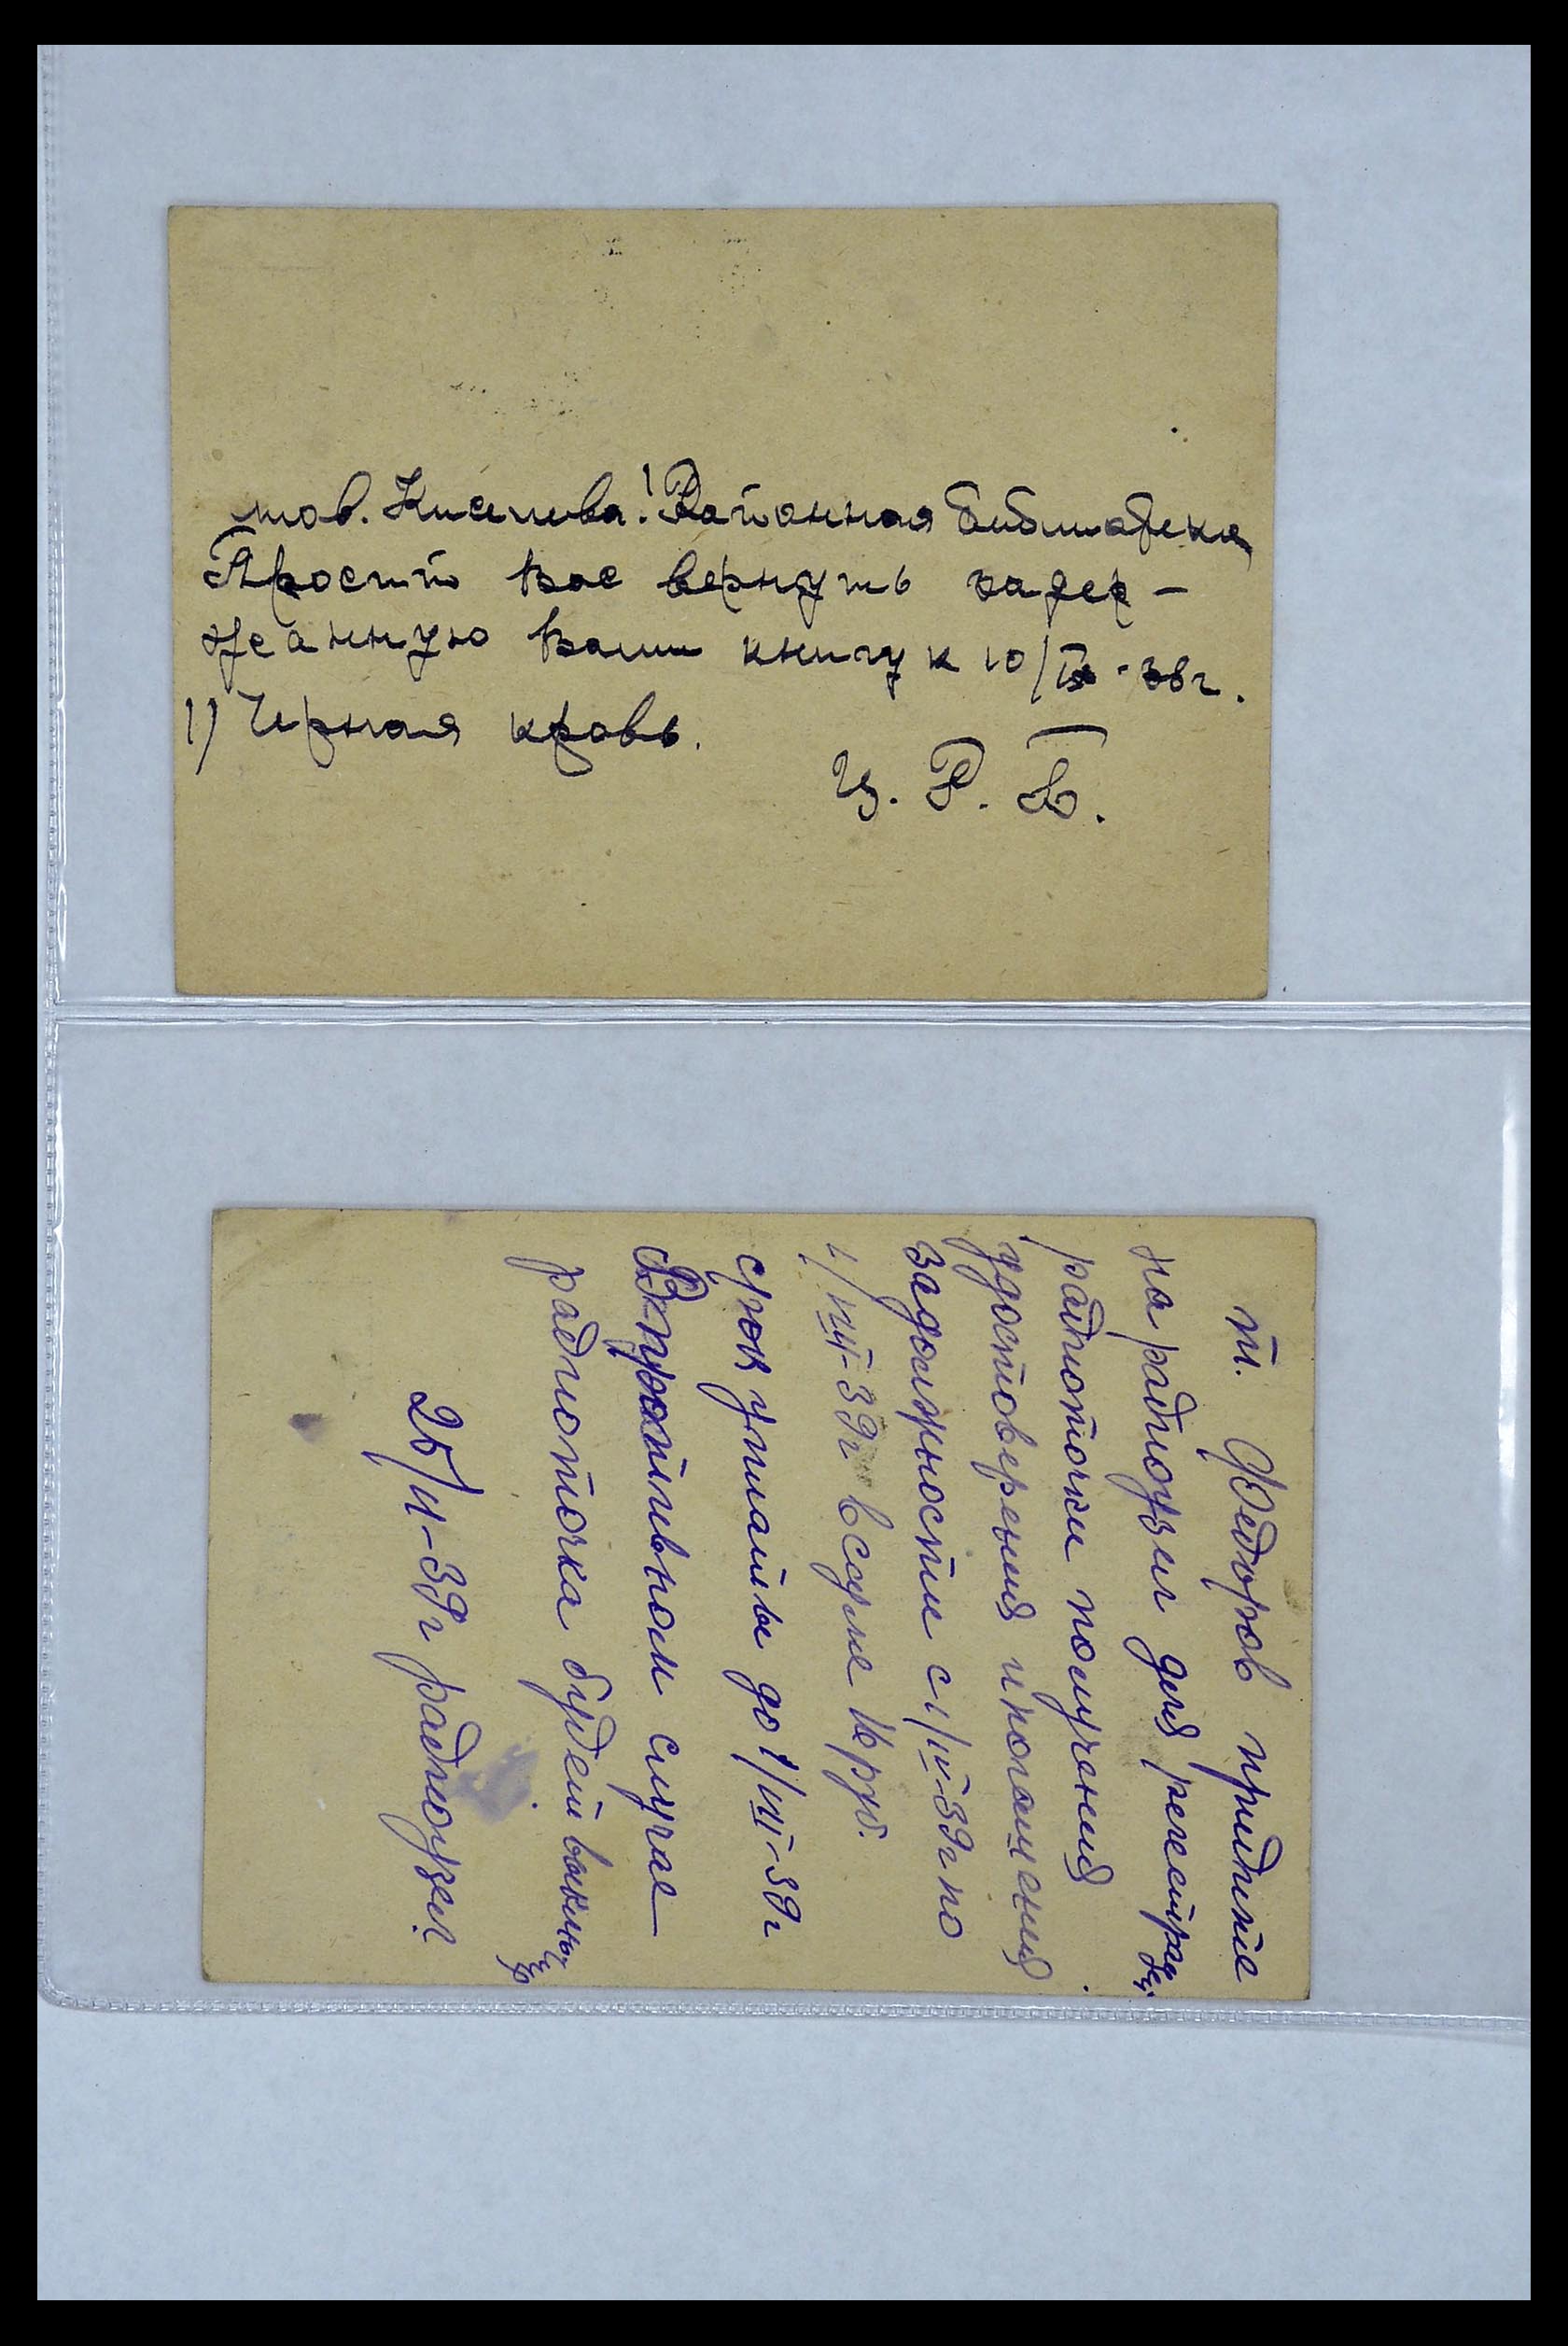 тов. Киселева! Районная библиотека
Просит Вас вернуть задер-
жанную Вами книгу к 10/IX-38г.
1) Черная кровь.
Ц. Р. Б.
т. Федоров придите
на радиоузел для регистрации
радиоточки получения
удостоверения и погашения
задолжности с 1/IV-39г по
1/VIII-39г в сумме 16 руб.
срок уплаты до 1/VIII-39г
В противном случае
радиоточка будет выключ
25/VI-39г радиоузел